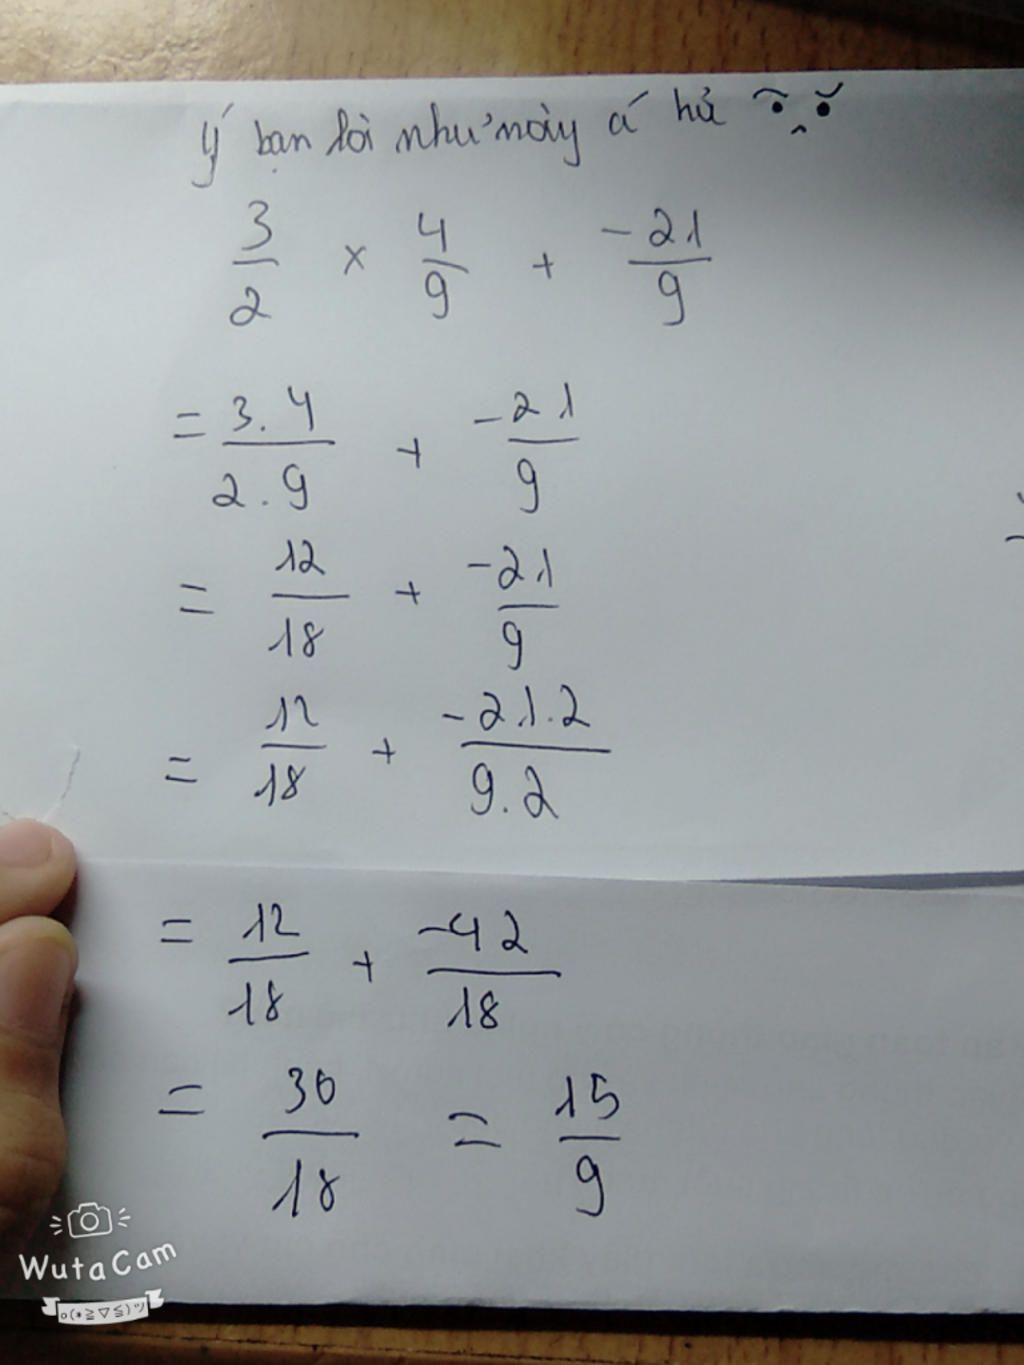 ý bạn là như này á hả
3/2 × 4/9 + -21/9
= 3.4/2.9 + -21/9
= 12/18 + -21/9
= 12/18 + -21.2/9.2
= 12/18 + -42/18
= 30/18 = 15/9
WutaCam
o(*≧▽≦)ツ